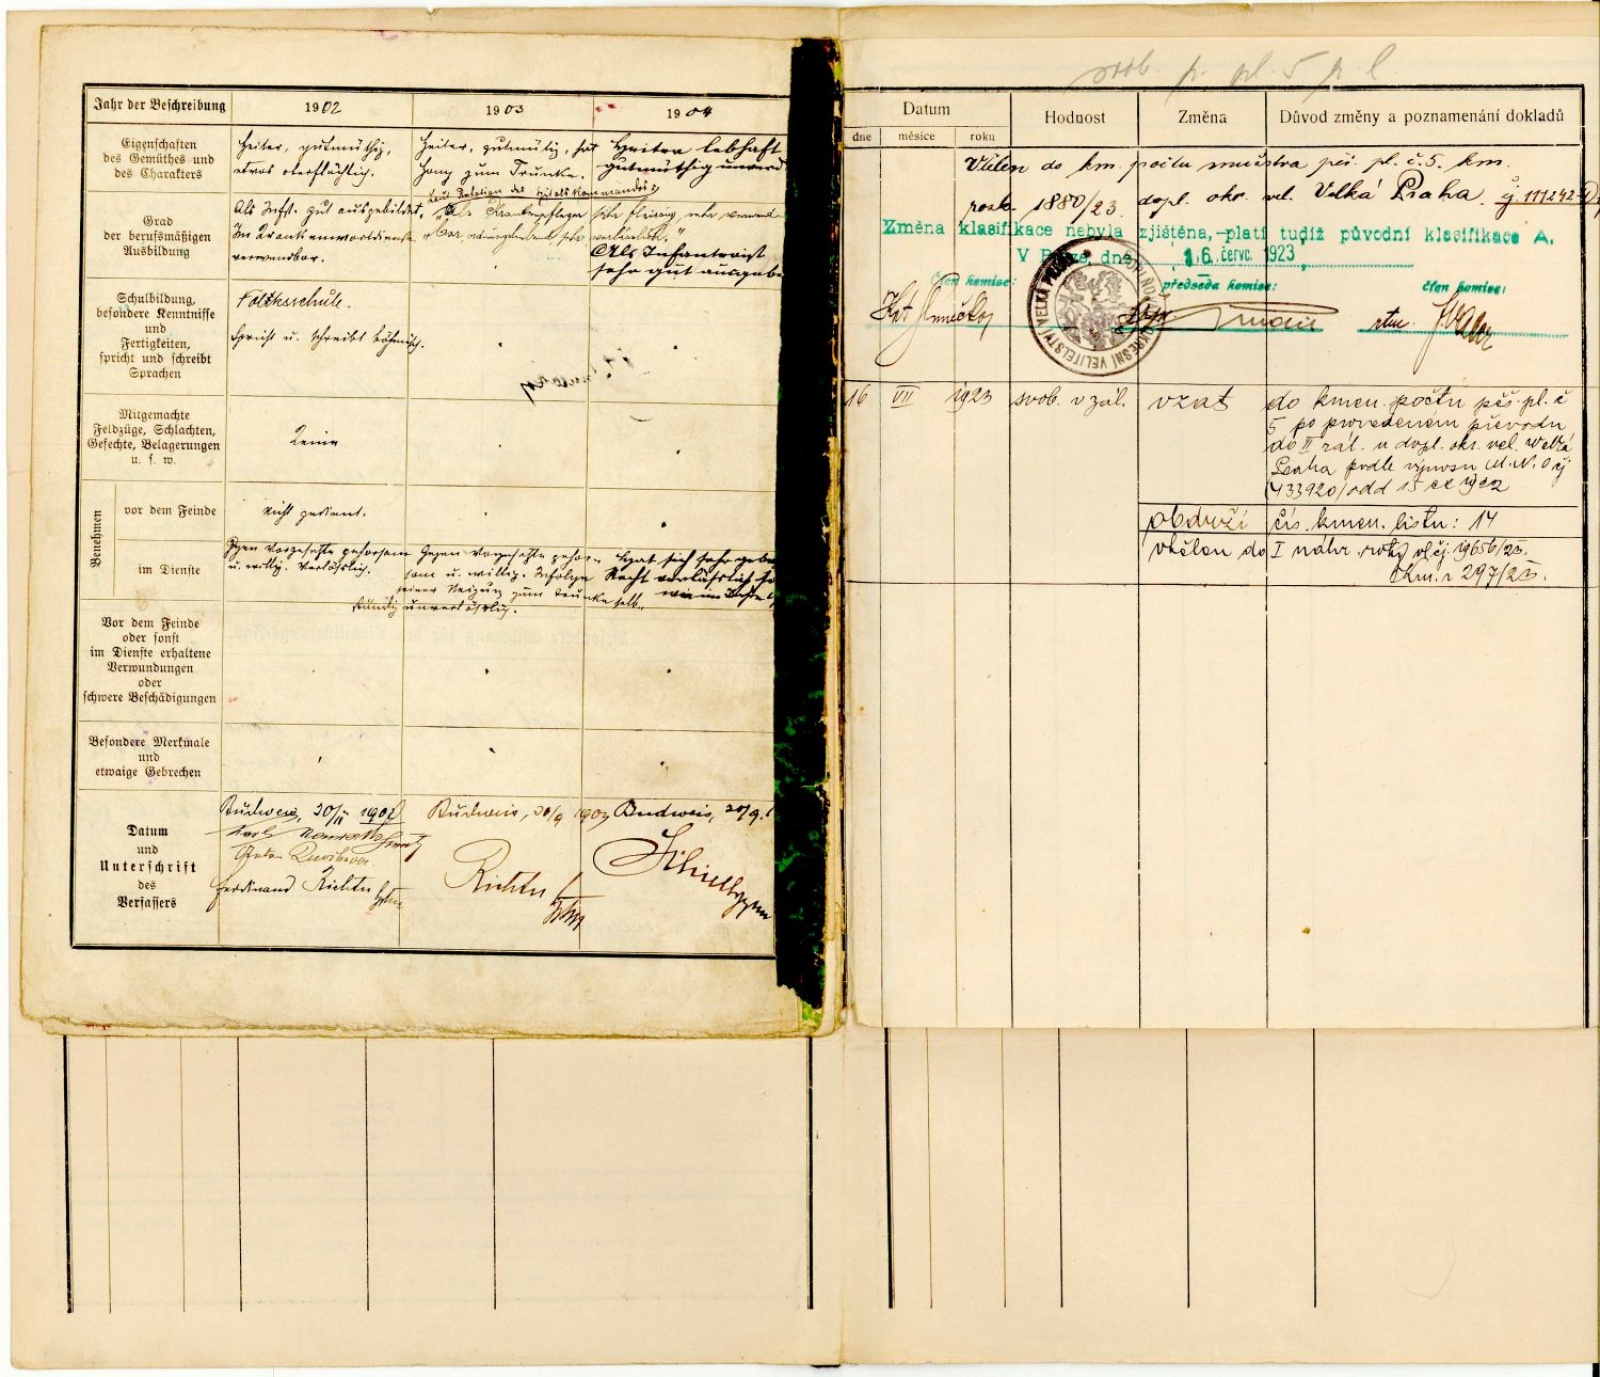 Jahr der Beschreibung 1902 1903 1904
Eigenschaften
des Gemüthes und
des Charakters
heiter, gutmüthig,
etwas oberflächlich.
Heiter, gutmütig, hat
Hang zum Trunke.
Heiter lebhaft
gutmüthig
Grad
der berufsmäßigen
Ausbildung
Als Infst. gut ausgebildet.
Im Krankenwartdienste
verwendbar.
Laut Relation des Spitalskommandos:
"Als Krankenpfleger sehr fleissig, sehr
verlässlich."
Als Infanterist
sehr gut ausgeb
Schulbildung,
besondere Kenntnisse
und
Fertigkeiten,
spricht und schreibt
Sprachen
Volksschule.
Spricht u. schreibt böhmisch.
Mitgemachte
Feldzüge, Schlachten,
Gefechte, Belagerungen
u. s. w.
Keine
Benehmen
vor dem Feinde
Nicht gedient.
im Dienste
Gegen Vorgesetzte gehorsam
u. willig. Verlässlich.
Gegen Vorgesetzte gehor-
sam u. willig. Infolge
seiner Neigung zum Trunke selb-
ständig unverlässlich.
Hat sich sehr gebe
Recht verlässlich
Vor dem Feinde
oder sonst
im Dienste erhaltene
Verwundungen
oder
schwere Beschädigungen
Besondere Merkmale
und
etwaige Gebrechen
Datum
und
Unterschrift
des
Verfassers
Budweis, 1902
Ferdinand Richter
Budweis, 30/9 1903
Richter
Budweis, 20/9.
svob. p. pl. 5 p. l
Datum Hodnost Změna Důvod změny a poznamenání dokladů
dne měsíce roku
Vtělen do km. počtu mužstva pěš. pl. č. 5. km.
rozk. 1880/23. dopl. okr. vel. Velká Praha. čj 111242
Změna klasifikace nebyla zjištěna, -platí tudíž původní klasifikace A.
V Praze, dne 16. červc. 1923
člen komise: předseda komise: člen komise:
DOPLŇOVACÍ OKRESNÍ VELITELSTVÍ VELKÁ PRAHA
16 VII 1923 svob. v zál. vzat do kmen. počtu pěš. pl. č
5 po provedeném převodu
do II zál. u dopl. okr. vel. Velká
Praha podle výnosu M.N.O čj
433920/odd 15 1922
obdrží čís. kmen. listu: 14
vtělen do I náhr. roty vl. čj. 19656/23.
Km. r 297/23.